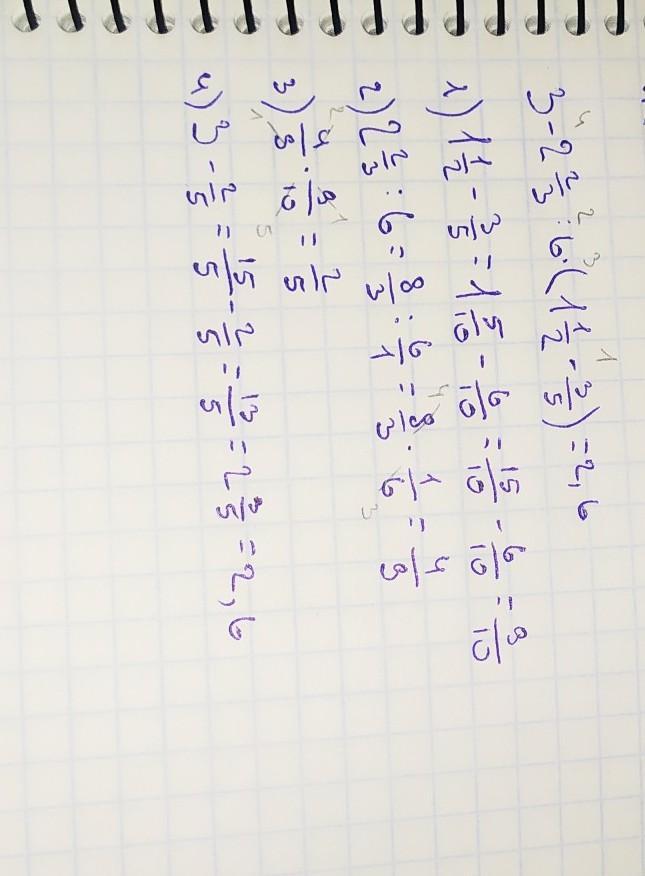 3 - 2 2/3 : 6 · (1 1/2 - 3/5) = 2,6
1) 1 1/2 - 3/5 = 1 5/10 - 6/10 = 15/10 - 6/10 = 9/10
2) 2 2/3 : 6 = 8/3 : 6/1 = 8/3 · 1/6 = 4/9
3) 4/9 · 9/10 = 2/5
4) 3 - 2/5 = 15/5 - 2/5 = 13/5 = 2 3/5 = 2,6